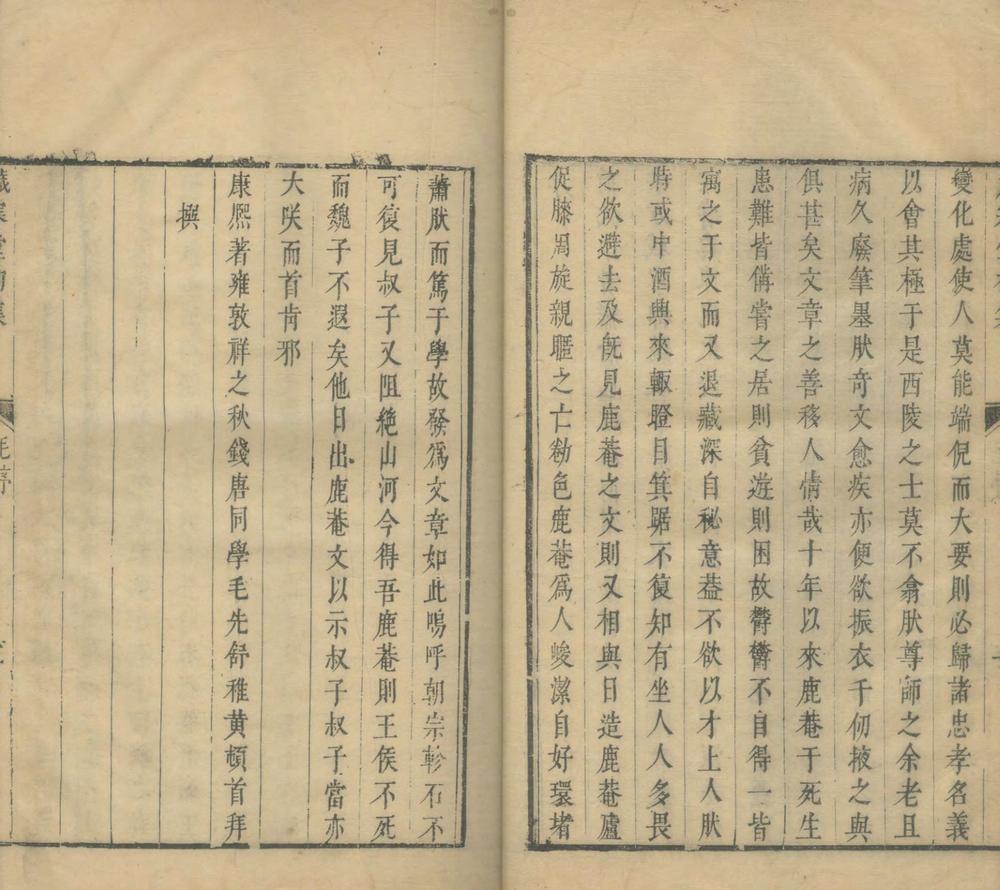 變化處使人莫能端倪而大要則必歸諸忠孝名義
以會其極于是西陵之士莫不翕肰尊師之余老且
病久廢筆墨肰奇文愈疾亦便欲振衣千仞掖之與
俱甚矣文章之善移人情哉十年以來鹿菴于死生
患難皆備嘗之居則貧遊則困故欝欝不自得一皆
寓之于文而又退藏深自秘意葢不欲以才上人肰
時或中酒興來輙瞪目箕踞不復知有坐人人多畏
之欲避去及旣見鹿菴之文則又相與日造鹿菴廬
促膝周旋親暱之亡勌色鹿菴爲人峻潔自好環堵
蕭肰而篤于學故發爲文章如此嗚呼朝宗軫石不
可復見叔子又阻絶山河今得吾鹿菴則王侯不死
而魏子不遐矣他日出鹿菴文以示叔子叔子當亦
大咲而首肯邪
康熈著雍敦祥之秋錢唐同學毛先舒稚黃頓首拜
撰
毛序